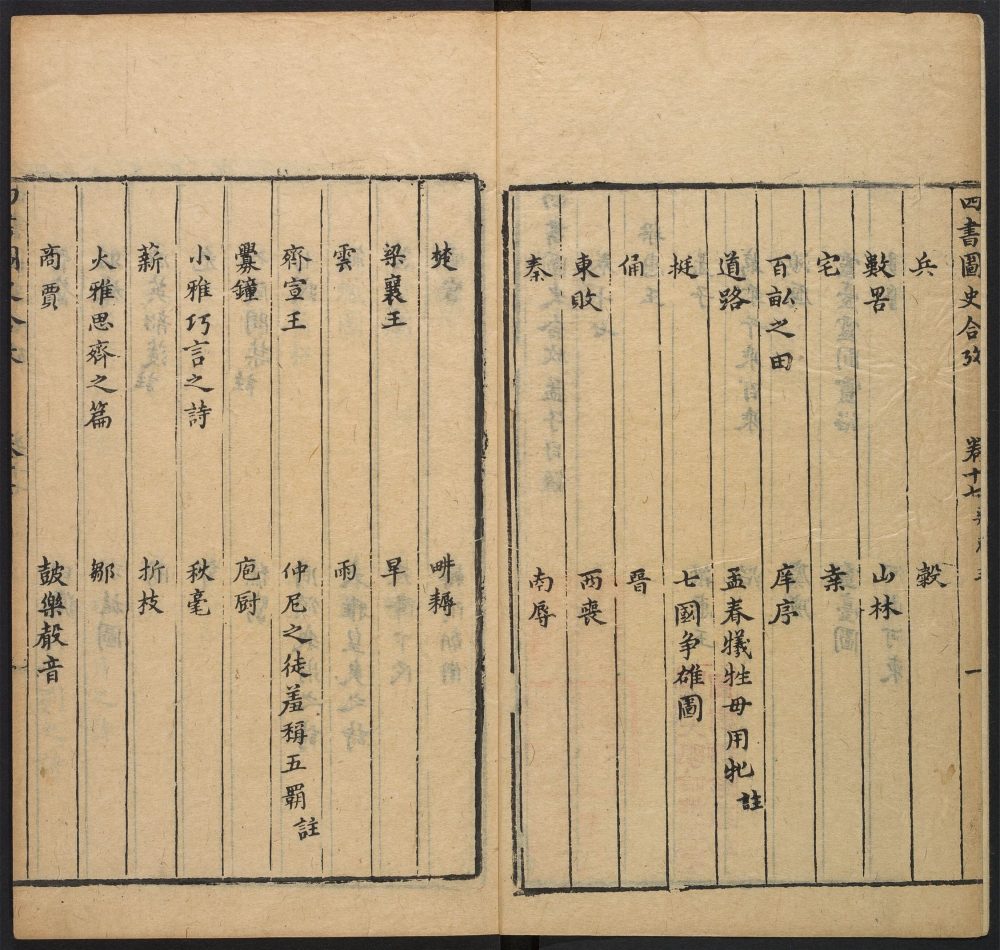 四書圖史合攷 卷十七 一
兵 穀
數罟 山林
宅
百畝之田 庠序
道路 孟春犧牲毋用牝 註
梃 七國争雄圖
俑 晉
東敗 西喪
秦 南辱
楚 畊耨
梁襄王 旱
雲 雨
齊宣王 仲尼之徒羞稱五霸 註
釁鐘 庖厨
小雅巧言之詩 秋毫
薪 折枝
大雅思齊之篇 鄒
商賈 鼓樂聲音